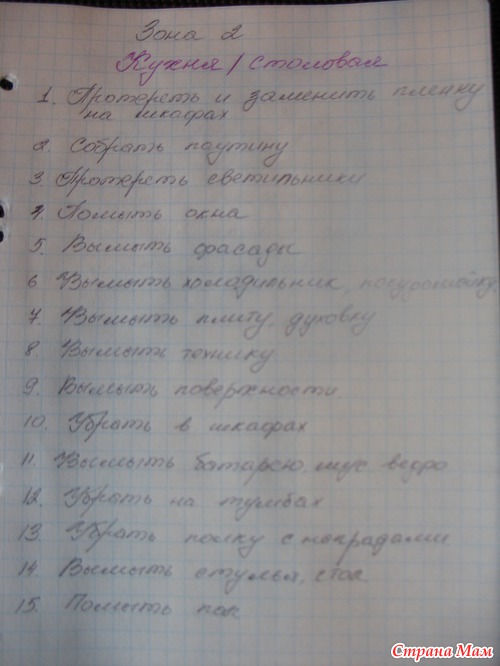 Зона 2
Кухня / столовая
1. Протереть и заменить пленку
на шкафах
2. Собрать паутину
3. Протереть светильники
4. Помыть окна
5. Вымыть фасады
6 Вымыть холодильник, посудомойку
7. Вымыть плиту, духовку
8. Вымыть технику
9. Вымыть поверхности.
10. Убрать в шкафах
11. Вымыть батарею, мус ведро
12. Убрать на тумбах
13. Убрать полку с
14. Вымыть стулья, стол
15. Помыть пол
Страна Мам